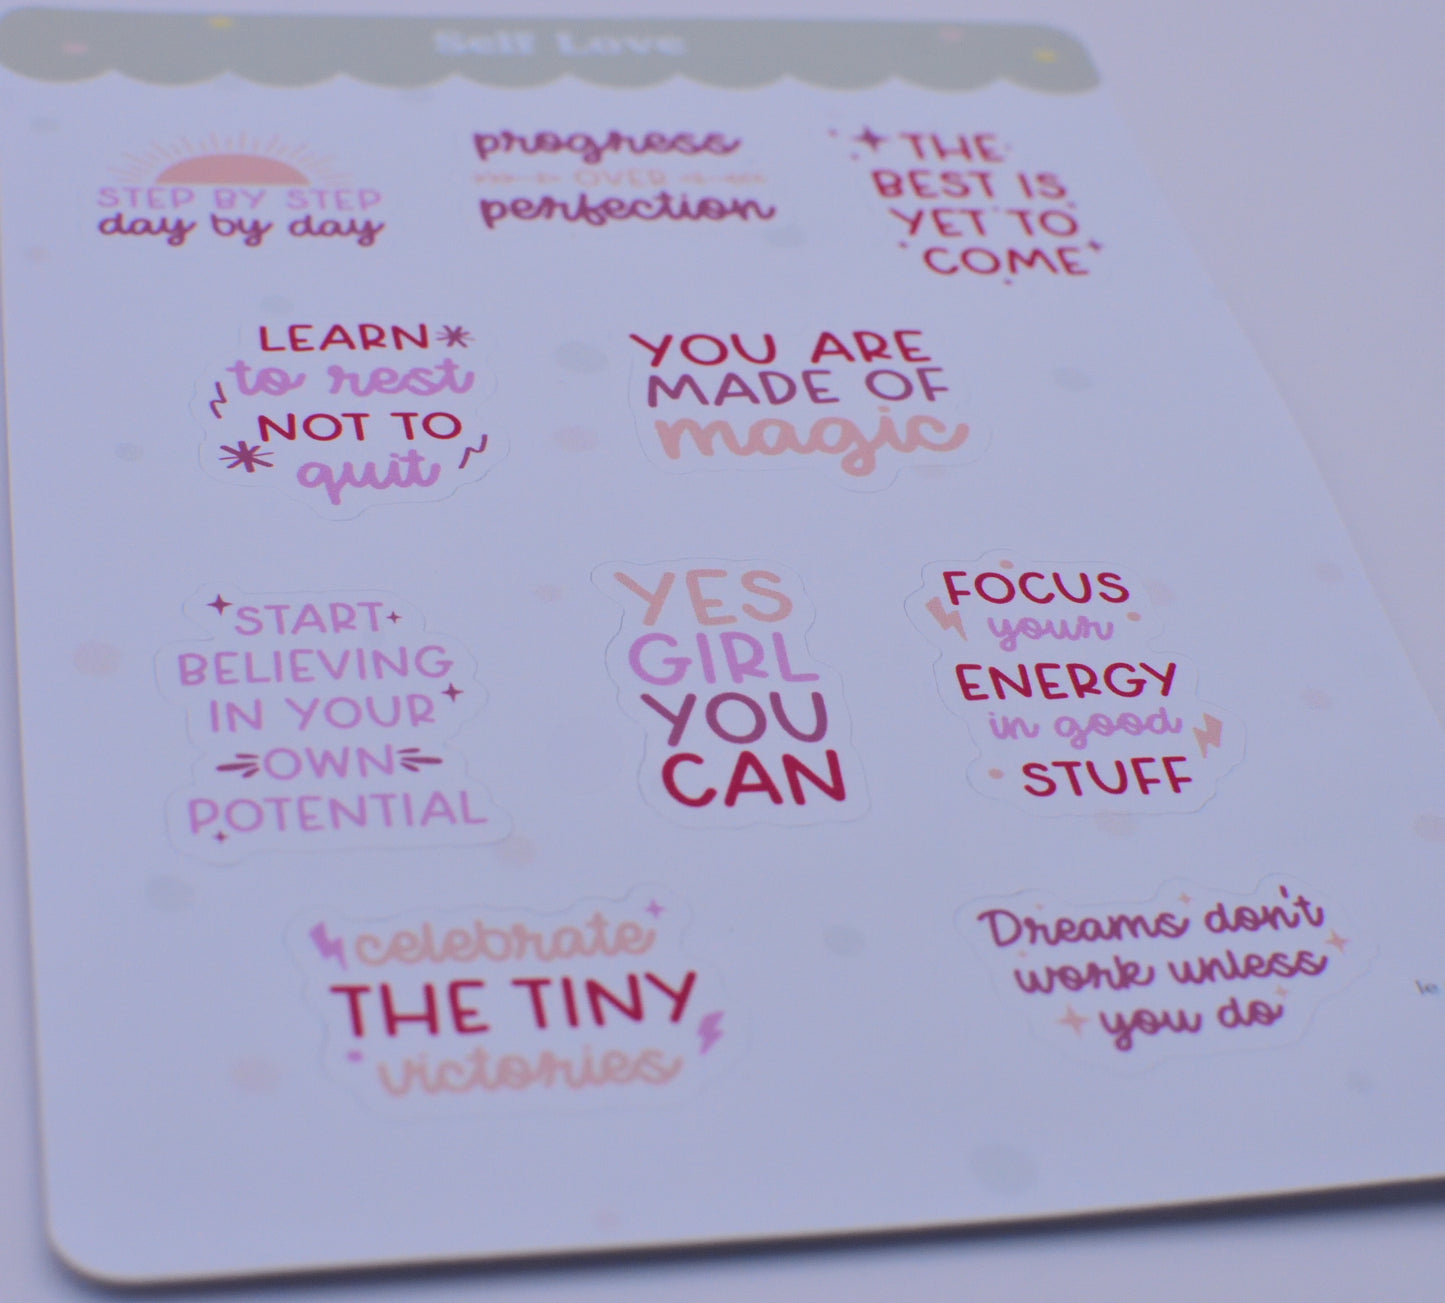 Self Love
STEP BY STEP
day by day
progress
OVER
perfection
THE
BEST IS
YET TO
COME
LEARN
to rest
NOT TO
quit
YOU ARE
MADE OF
magic
START
BELIEVING
IN YOUR
OWN
POTENTIAL
YES
GIRL
YOU
CAN
FOCUS
your
ENERGY
in good
STUFF
celebrate
THE TINY
victories
Dreams don't
work unless
you do
le